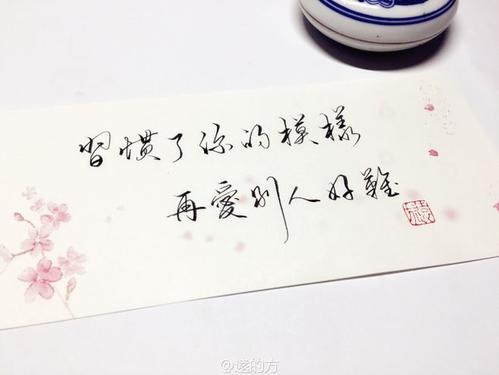 習慣了你的模樣
再愛別人好難
@遂的方